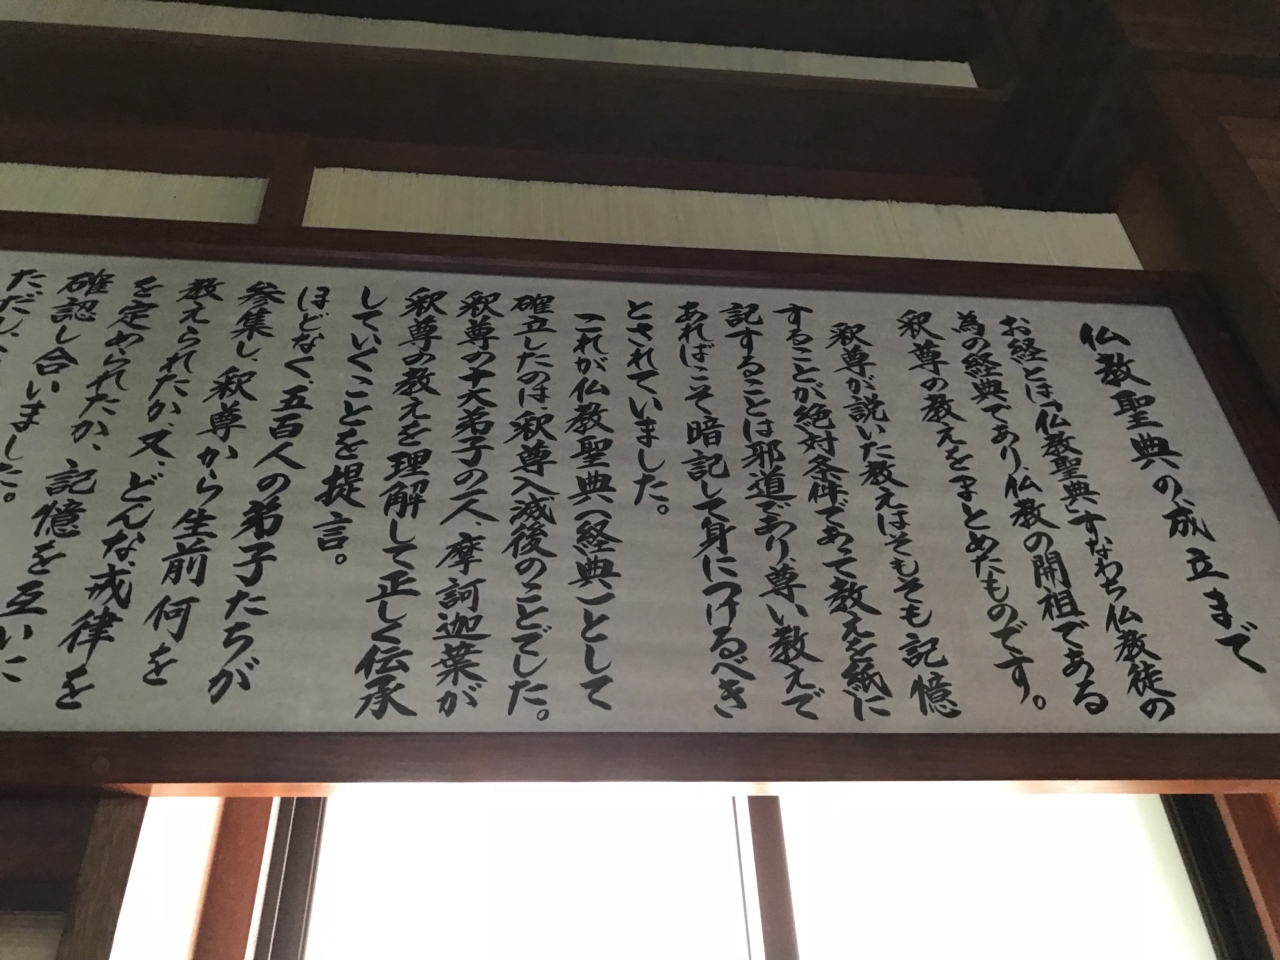 仏教聖典の成立まで
お経とは「仏教聖典」すなわち仏教徒の
為の経典であり、仏教の開祖である
釈尊の教えをまとめたものです。
釈尊が説いた教えはそもそも記憶
することが絶対条件であって教えを紙に
記することは邪道であり尊い教えで
あればこそ暗記して身につけるべき
とされていました。
これが仏教聖典（経典）として
確立したのは、釈尊入滅後のことでした。
釈尊の十大弟子の一人、摩訶迦葉が
釈尊の教えを理解して正しく伝承
していくことを提言。
ほどなく、五百人の弟子たちが
参集し、釈尊から生前何を
教えられたか、又、どんな戒律を
を定められたか、記憶を互いに
確認し合いました。
ただし、